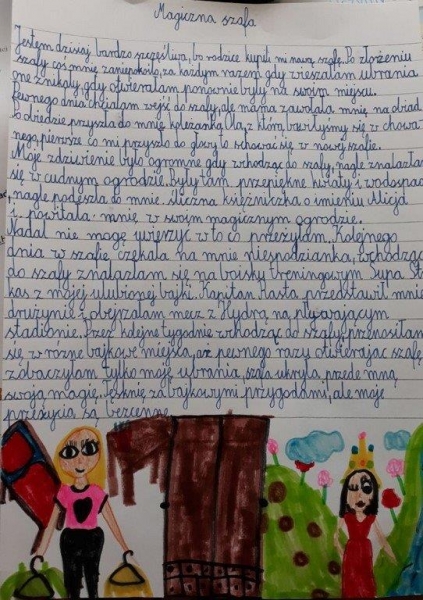 Magiczna szafa
Jestem dzisiaj bardzo szczęśliwa, bo rodzice kupili mi nową szafę. Po złożeniu
szafy coś mnie zaniepokoiło, za każdym razem gdy wieszałam ubrania
one znikały, gdy otwierałam ponownie były na swoim miejscu.
Pewnego dnia chciałam wejść do szafy, ale mama zawołała mnie na obiad.
Po obiedzie przyszła do mnie koleżanka Ola, z którą bawiłyśmy się w chowa-
nego, pierwsze co mi przyszło do głowy to schować się w nowej szafie.
Moje zdziwienie było ogromne gdy wchodząc do szafy, nagle znalazłam
się w cudnym ogrodzie. Były tam przepiękne kwiaty i wodospad,
nagle podeszła do mnie śliczna księżniczka o imieniu Alicja
i powitała mnie w swoim magicznym ogrodzie.
Nadal nie mogę uwierzyć w to co przeżyłam. Kolejnego
dnia w szafie czekała na mnie niespodzianka, wchodząc
do szafy znalazłam się na boisku treningowym Supa Stri-
kas z mojej ulubionej bajki. Kapitan Rasta przedstawił mnie
drużynie i obejrzałam mecz z Hydrą na pływającym
stadionie. Przez kolejne tygodnie wchodząc do szafy przenosiłam
się w różne bajkowe miejsca, aż pewnego razu otwierając szafę
zobaczyłam tylko moje ubrania, szafa ukryła przede mną
swoją magię. Tęsknię za bajkowymi przygodami, ale moje
przeżycia są bezcenne.